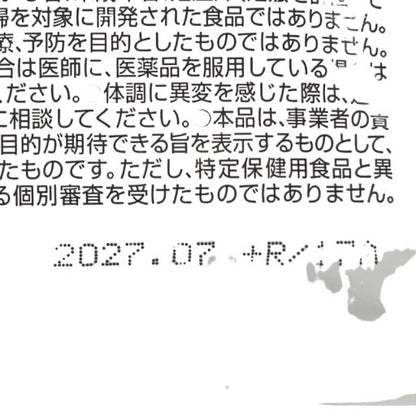 婦を対象に開発された食品ではありません。
療、予防を目的としたものではありません。
合は医師に、医薬品を服用している
ください。○体調に異変を感じた際は、
に相談してください。○本品は、事業者の責
目的が期待できる旨を表示するものとして、
たものです。ただし、特定保健用食品と異
る個別審査を受けたものではありません。
2027.07 +R/